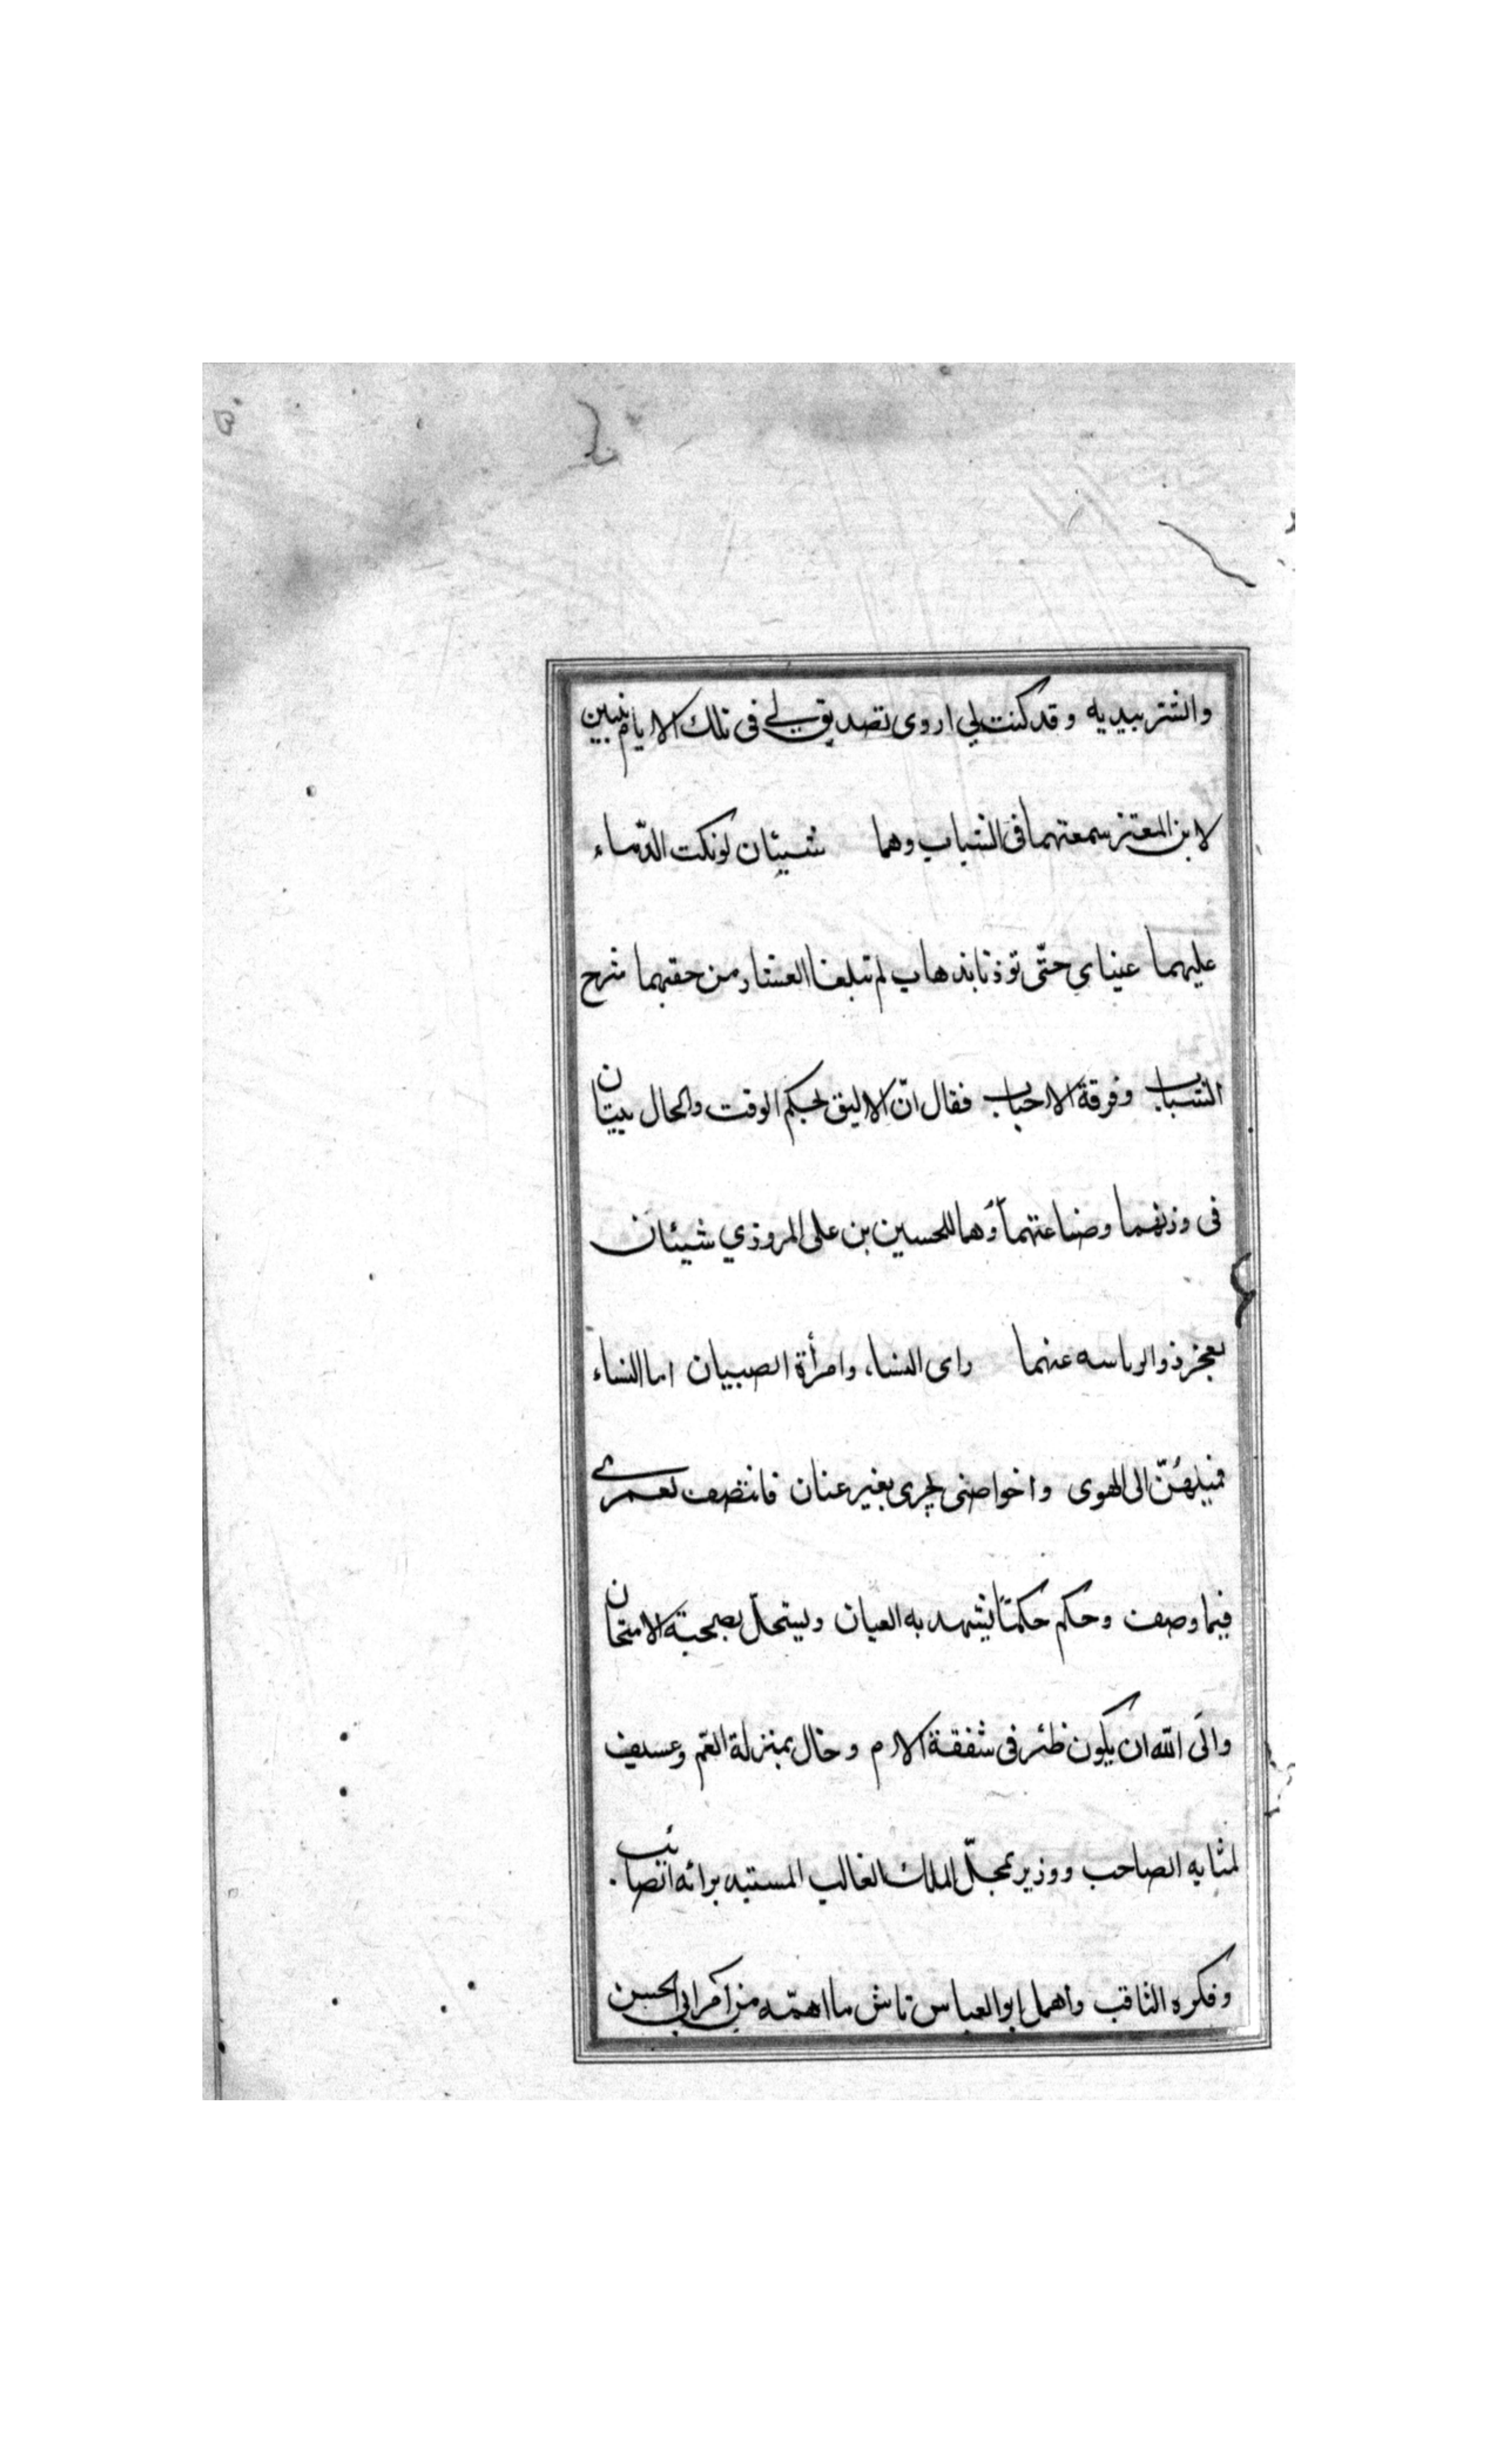 والشر بيديه وقد كنت لي اروى تصديق لي في تلك الايام بيتين
لابن المعتز سمعتهما في الشباب وهما شيئان لو بكت الدّماء
عليهما عيناي حتّى توذنا بذهاب لم تبلغا العشار من حقيهما شرح
الشباب وفرقة الاحباب فقال انّ الاليق لحكم الوقت والحال بيتان
في وزنهما وصناعتهما وهما للحسين بن على المروذي شيئان
يعجز ذو الرياسه عنهما راى النساء وامرأة الصبيان اما النساء
فميلهنّ الى الهوى واخو الصبى يجرى بغير عنان فانتصف لعمرى
فيما وصف وحكم حكمتا يشهد به العيان ويستحلّ بصحبته الامتحان
والى الله ان يكون ظئر في شفقة الام وخال بمنزلة العم وعسيف
لمثابه الصاحب ووزير بمحلّ الملك الغالب المستبد برائه الصائب
وفكره الثاقب واهمل ابو العباس تاش ما اهمّه من امر ابي الحسن